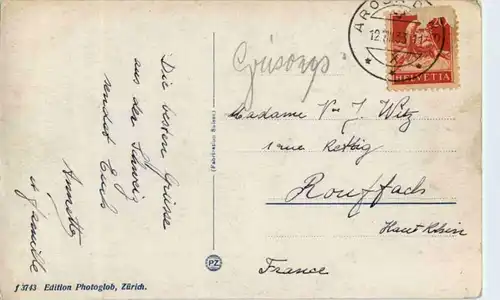 Die besten Grüsse
aus der Schweiz
sendet Euch
Annette
et famille
f 3743 Edition Photoglob, Zürich.
PZ
AROSA
20
HELVETIA
Grisons
Madame Vve J. Witz
rue Rettig
Rouffach
Haut Rhin
France